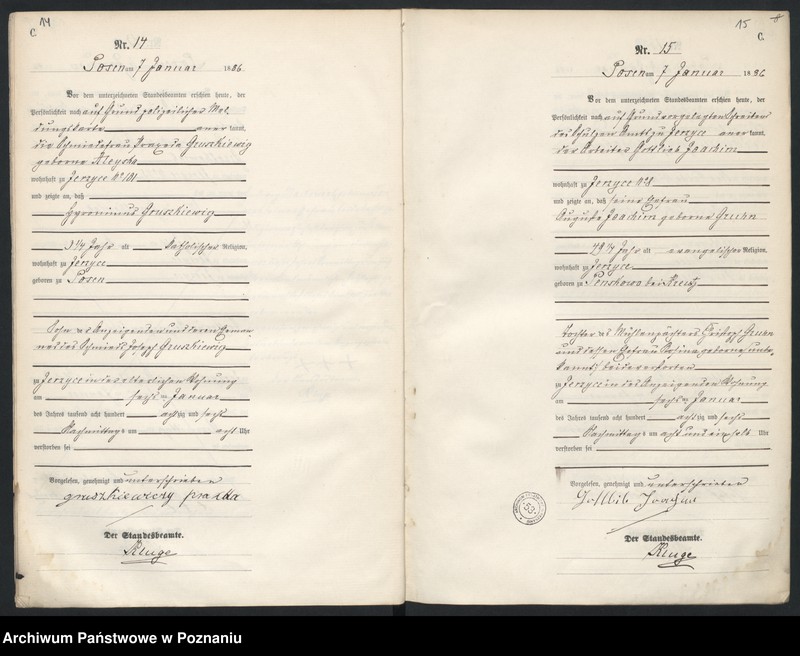 14
C.
Nr. 14
Posen am 7 Januar 1886.
Vor dem unterzeichneten Standesbeamten erschien heute, der
Persönlichkeit nach auf Grund polizeilicher Mel-
dungskarte aner kannt,
die Schmiedefrau Praxeda Gruszkiewicz
geborne Aleycka
wohnhaft zu Jerzyce No 101
und zeigte an, daß
Hyronimus Gruszkiewicz
3 1/4 Jahr alt katholischer Religion,
wohnhaft zu Jerzyce
geboren zu Posen
Sohn der Anzeigenden und deren Eheman-
nes des Schmieds Joseph Gruszkiewicz
zu Jerzyce in der elterlichen Wohnung
am sechs ten Januar
des Jahres tausend acht hundert achtzig und sechs
Nachmittags um acht Uhr
verstorben sei
Vorgelesen, genehmigt und unterschrieben
gruszkiewiczy praxda
Der Standesbeamte.
Kluge
15
8
C.
Nr. 15
Posen am 7 Januar 1886
Vor dem unterzeichneten Standesbeamten erschien heute, der
Persönlichkeit nach auf Grund vorgelegten Schreibens
des Schulzen Amts zu Jerzyce aner kannt,
der Arbeiter Gottlieb Joachim
wohnhaft zu Jerzyce No 8
und zeigte an, daß seine Ehefrau
Auguste Joachim geborne Gruhn
49 1/4 Jahr alt evangelischer Religion,
wohnhaft zu Jerzyce
geboren zu Penskowo bei Kreutz
Tochter des Mühlenpächters Christoph Gruhn
und dessen Ehefrau Rosina geborne unbe-
kannt, beide verstorben
zu Jerzyce in des Anzeigenden Wohnung
am sechs ten Januar
des Jahres tausend acht hundert achtzig und sechs
Nachmittags um acht und ein halb Uhr
verstorben sei
Vorgelesen, genehmigt und unterschrieben
Gottlib Joachim
53.
Der Standesbeamte.
Kluge
Archiwum Państwowe w Poznaniu